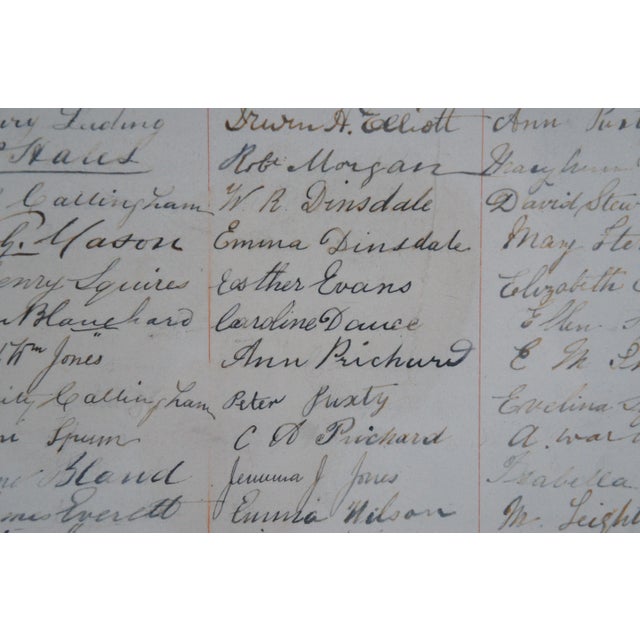 Luding
Hales
Callingham
G. Mason
Henry Squires
Blanchard
Wm Jones
Callingham
Spurr
Bland
James Everett
Irwin H. Elliott
Robt Morgan
W. R. Dinsdale
Emma Dinsdale
Esther Evans
Caroline Dauce
Ann Prichard
Peter Juxty
C A Prichard
Jemima J Jones
Emma Wilson
Ann
Mary Ann
David Stew
Mary Ste
Elizabeth
Ellen
E M
Evelina
A. War
Isabella
M. Leight